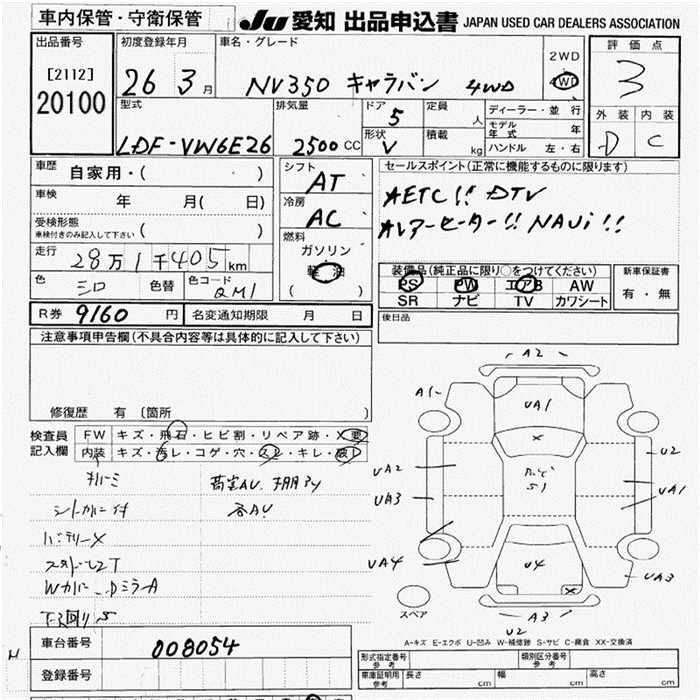 車内保管・守衛保管
JU 愛知 出品申込書 JAPAN USED CAR DEALERS ASSOCIATION
出品番号
[2112]
20100
初度登録年月
26 3月
車名・グレード
NV350 キャラバン 4WD
2WD
4WD
評価点
3
外装 内装
D C
型式
LDF-VW6E26
排気量
2500 CC
ドア
5
形状
V
定員
人
積載
kg
ディーラー・並行
モデル年式 年
ハンドル 左・右
車歴
自家用・( )
車検
年 月( 日)
受検形態
車検付きのみ記入して下さい ( )
走行
28万1千405km
色
シロ
色替
色コード
QM1
シフト
AT
冷房
AC
燃料
ガソリン
軽油
( )
セールスポイント(正常に機能するものに限り)
★ETC!! DTV
★レアーヒーター!! NAVi!!
装備品(純正品に限り○をつけてください)
PS PW エアB AW
SR ナビ TV カワシート
新車保証書
有・無
R券 9160 円
名変通知期限 月 日
後日品
注意事項申告欄(不具合内容等は具体的に記入して下さい)
修復歴 有 (箇所 )
検査員記入欄
FW キズ・飛石・ヒビ割・リペア跡・X要
内装 キズ・汚レ・コゲ・穴・スレ・キレ・破レ
シートカバー付
バッテリーX
スタッドレスT
Wカバー Dミラー A
A2
A1
UA1
X
U2
UA2
UA3
51
UA1
UA4
U4
X
UA3
スペア
A3
U2
A-キズ E-エクボ U-凹み W-補修跡 S-サビ C-腐食 XX-交換済
車台番号
008054
登録番号
形式指定番号 参考
類別区分番号 参考
車庫証明用 参考
長さ cm
幅 cm
高さ cm